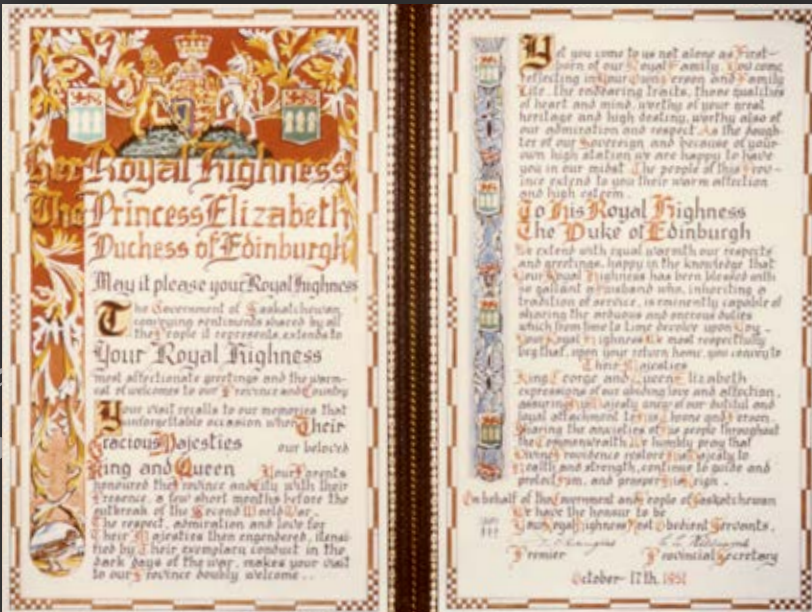 Her Royal Highness
The Princess Elizabeth
Duchess of Edinburgh
May it please your Royal Highness
The Government of Saskatchewan
conveying sentiments shared by all
the People it represents, extends to
Your Royal Highness
most affectionate greetings and the warm-
est of welcomes to our Province and Country
Your visit recalls to our memories that
unforgettable occasion when Their
Gracious Majesties our beloved
King and Queen Your Parents
honoured the Province and City with their
Presence, a few short months before the
outbreak of the Second World War.
The respect, admiration and love for
Their Majesties then engendered, itensi-
fied by Their exemplary conduct in the
dark days of the war, makes your visit
to our Province doubly welcome..
Yet you come to us not alone as First-
born of our Royal Family. You come
reflecting in Your Own Person and Family
Life, the endearing traits, those qualities
of heart and mind, worthy of your great
heritage and high destiny, worthy also of
our admiration and respect. As the daugh-
ter of our Sovereign and because of your
own high station we are happy to have
you in our midst. The people of this Prov-
ince extend to you their warm affection
and high esteem.
To His Royal Highness
The Duke of Edinburgh
We extend with equal warmth our respects
and greetings, happy in the knowledge that
Your Royal Highness has been blessed with
so gallant a Husband who, inheriting a
tradition of service, is eminently capable of
sharing the arduous and onerous duties
which from time to time devolve upon You.
Your Royal Highness We most respectfully
beg that, upon your return home, you convey to
Their Majesties
King George and Queen Elizabeth
expressions of our abiding love and affection,
assuring His Majesty anew of our dutiful and
loyal attachment to His Throne and Person.
Sharing the anxieties of His people throughout
the Commonwealth We humbly pray that
Divine Providence restore His Majesty to
health and strength, continue to guide and
protect Him, and prosper His Reign.
On behalf of the Government and People of Saskatchewan
We have the honour to be
Your Royal Highness' Most Obedient Servants.
Premier Provincial Secretary
October 17th, 1951